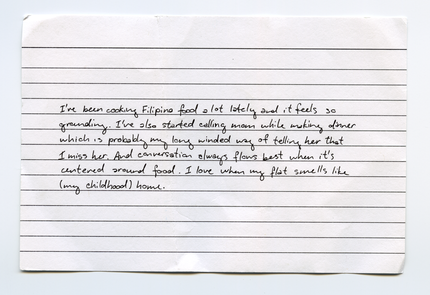 I've been cooking Filipino food a lot lately and it feels so
grounding. I've also started calling mom while making dinner
which is probably my long winded way of telling her that
I miss her. And conversation always flows best when it's
centered around food. I love when my flat smells like
(my childhood) home.